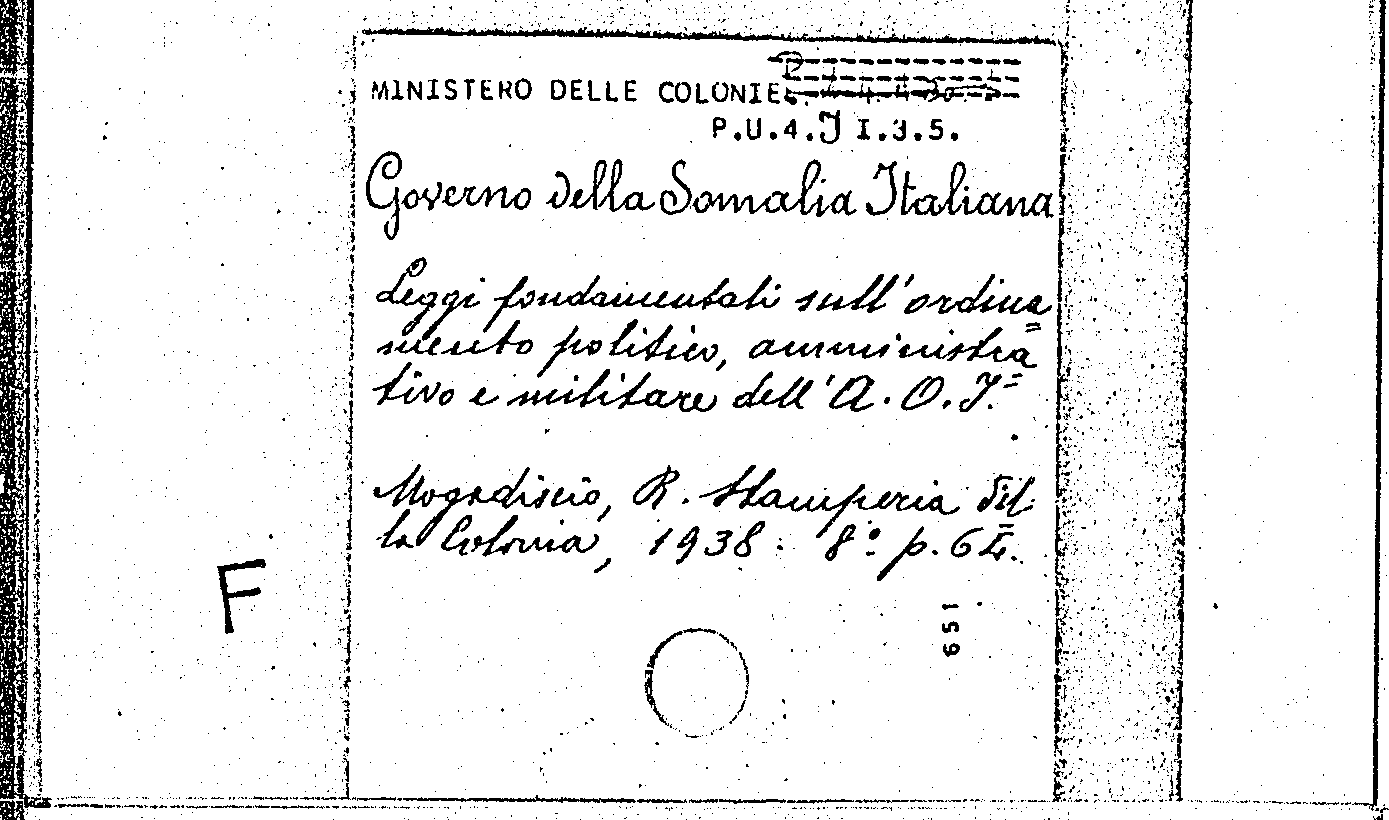 MINISTERO DELLE COLONIE
P.U.4.J I.3.5.
Governo della Somalia Italiana
Leggi fondamentali sull'ordina=
mento politico, amministra=
tivo e militare dell'A.O.I.
Mogadiscio, R. Stamperia del-
la Colonia, 1938. 8° p. 64.
F
651